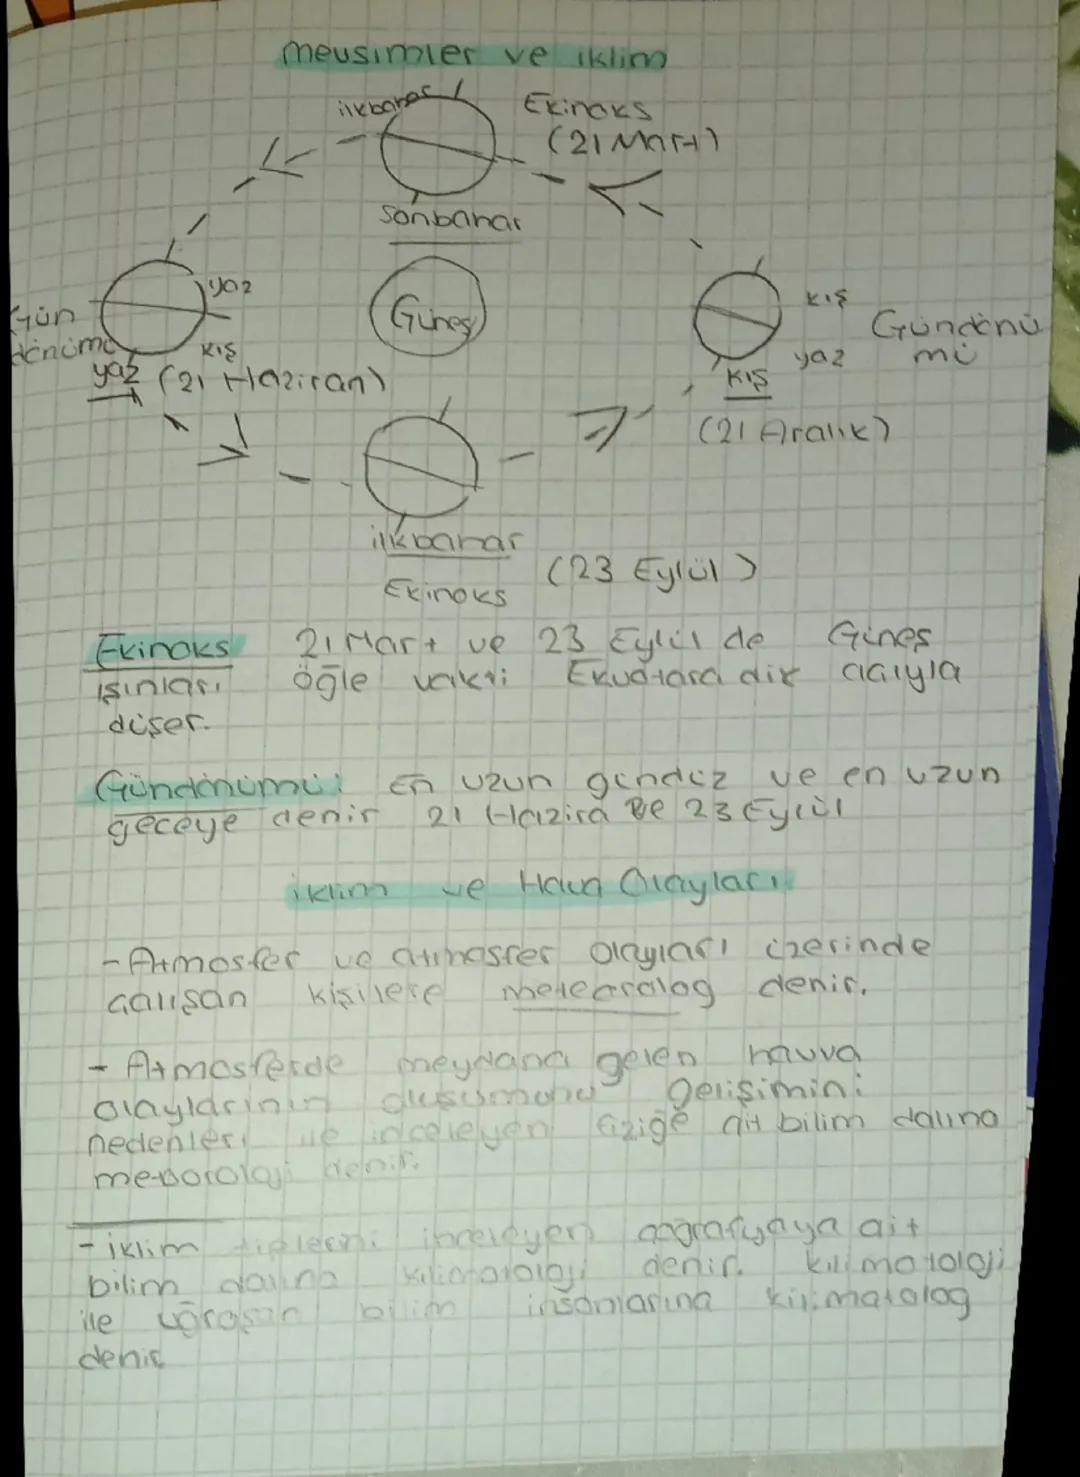 mevsimler ve iklim
ilkbahar
Ekinoks
(21 Mart)
sonbahar
yaz
Gün
dönümü
kış
yaz (21 Haziran)
Güneş
kış
Gündönü
mü
yaz
KIŞ
(21 Aralık)
ilkbahar
(23 Eylül)
Ekinoks
Ekinoks 21 Mart ve 23 Eylül de Güneş
ışınları öğle vakti Ekvatora dik açıyla
düşer.
Gündönümü: En uzun gündüz ve en uzun
geceye denir 21 Hazira ve 23 Eylül
iklim ve Hava Olayları
- Atmosfer ve atmosfer olayları üzerinde
çalışan kişilere meteorolog denir.
- Atmosferde meydana gelen havva
olaylarının gelişimini
nedenleri ve inceleyen fiziğe ait bilim dalına
denir.
- iklim tiplerini inceleyen coğrafyaya ait
bilim dalına denir. kilimatoloji
ile uğraşan bilim insanlarına kilimatolog
denir